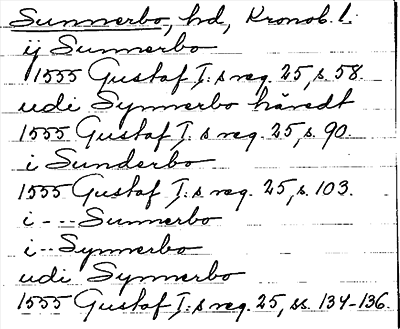 Sunnerbo, hd, Kronob. l.
ij Sunnerbo
1555 Gustaf I:s reg. 25, s. 58.
udi Synnerbo häredt
1555 Gustaf I:s reg. 25, s. 90.
i Sunderbo
1555 Gustaf I:s reg. 25, s. 103.
i --- Sunnerbo
i -- Synnerbo
udi Synnerbo
1555 Gustaf I:s reg. 25, ss. 134-136.